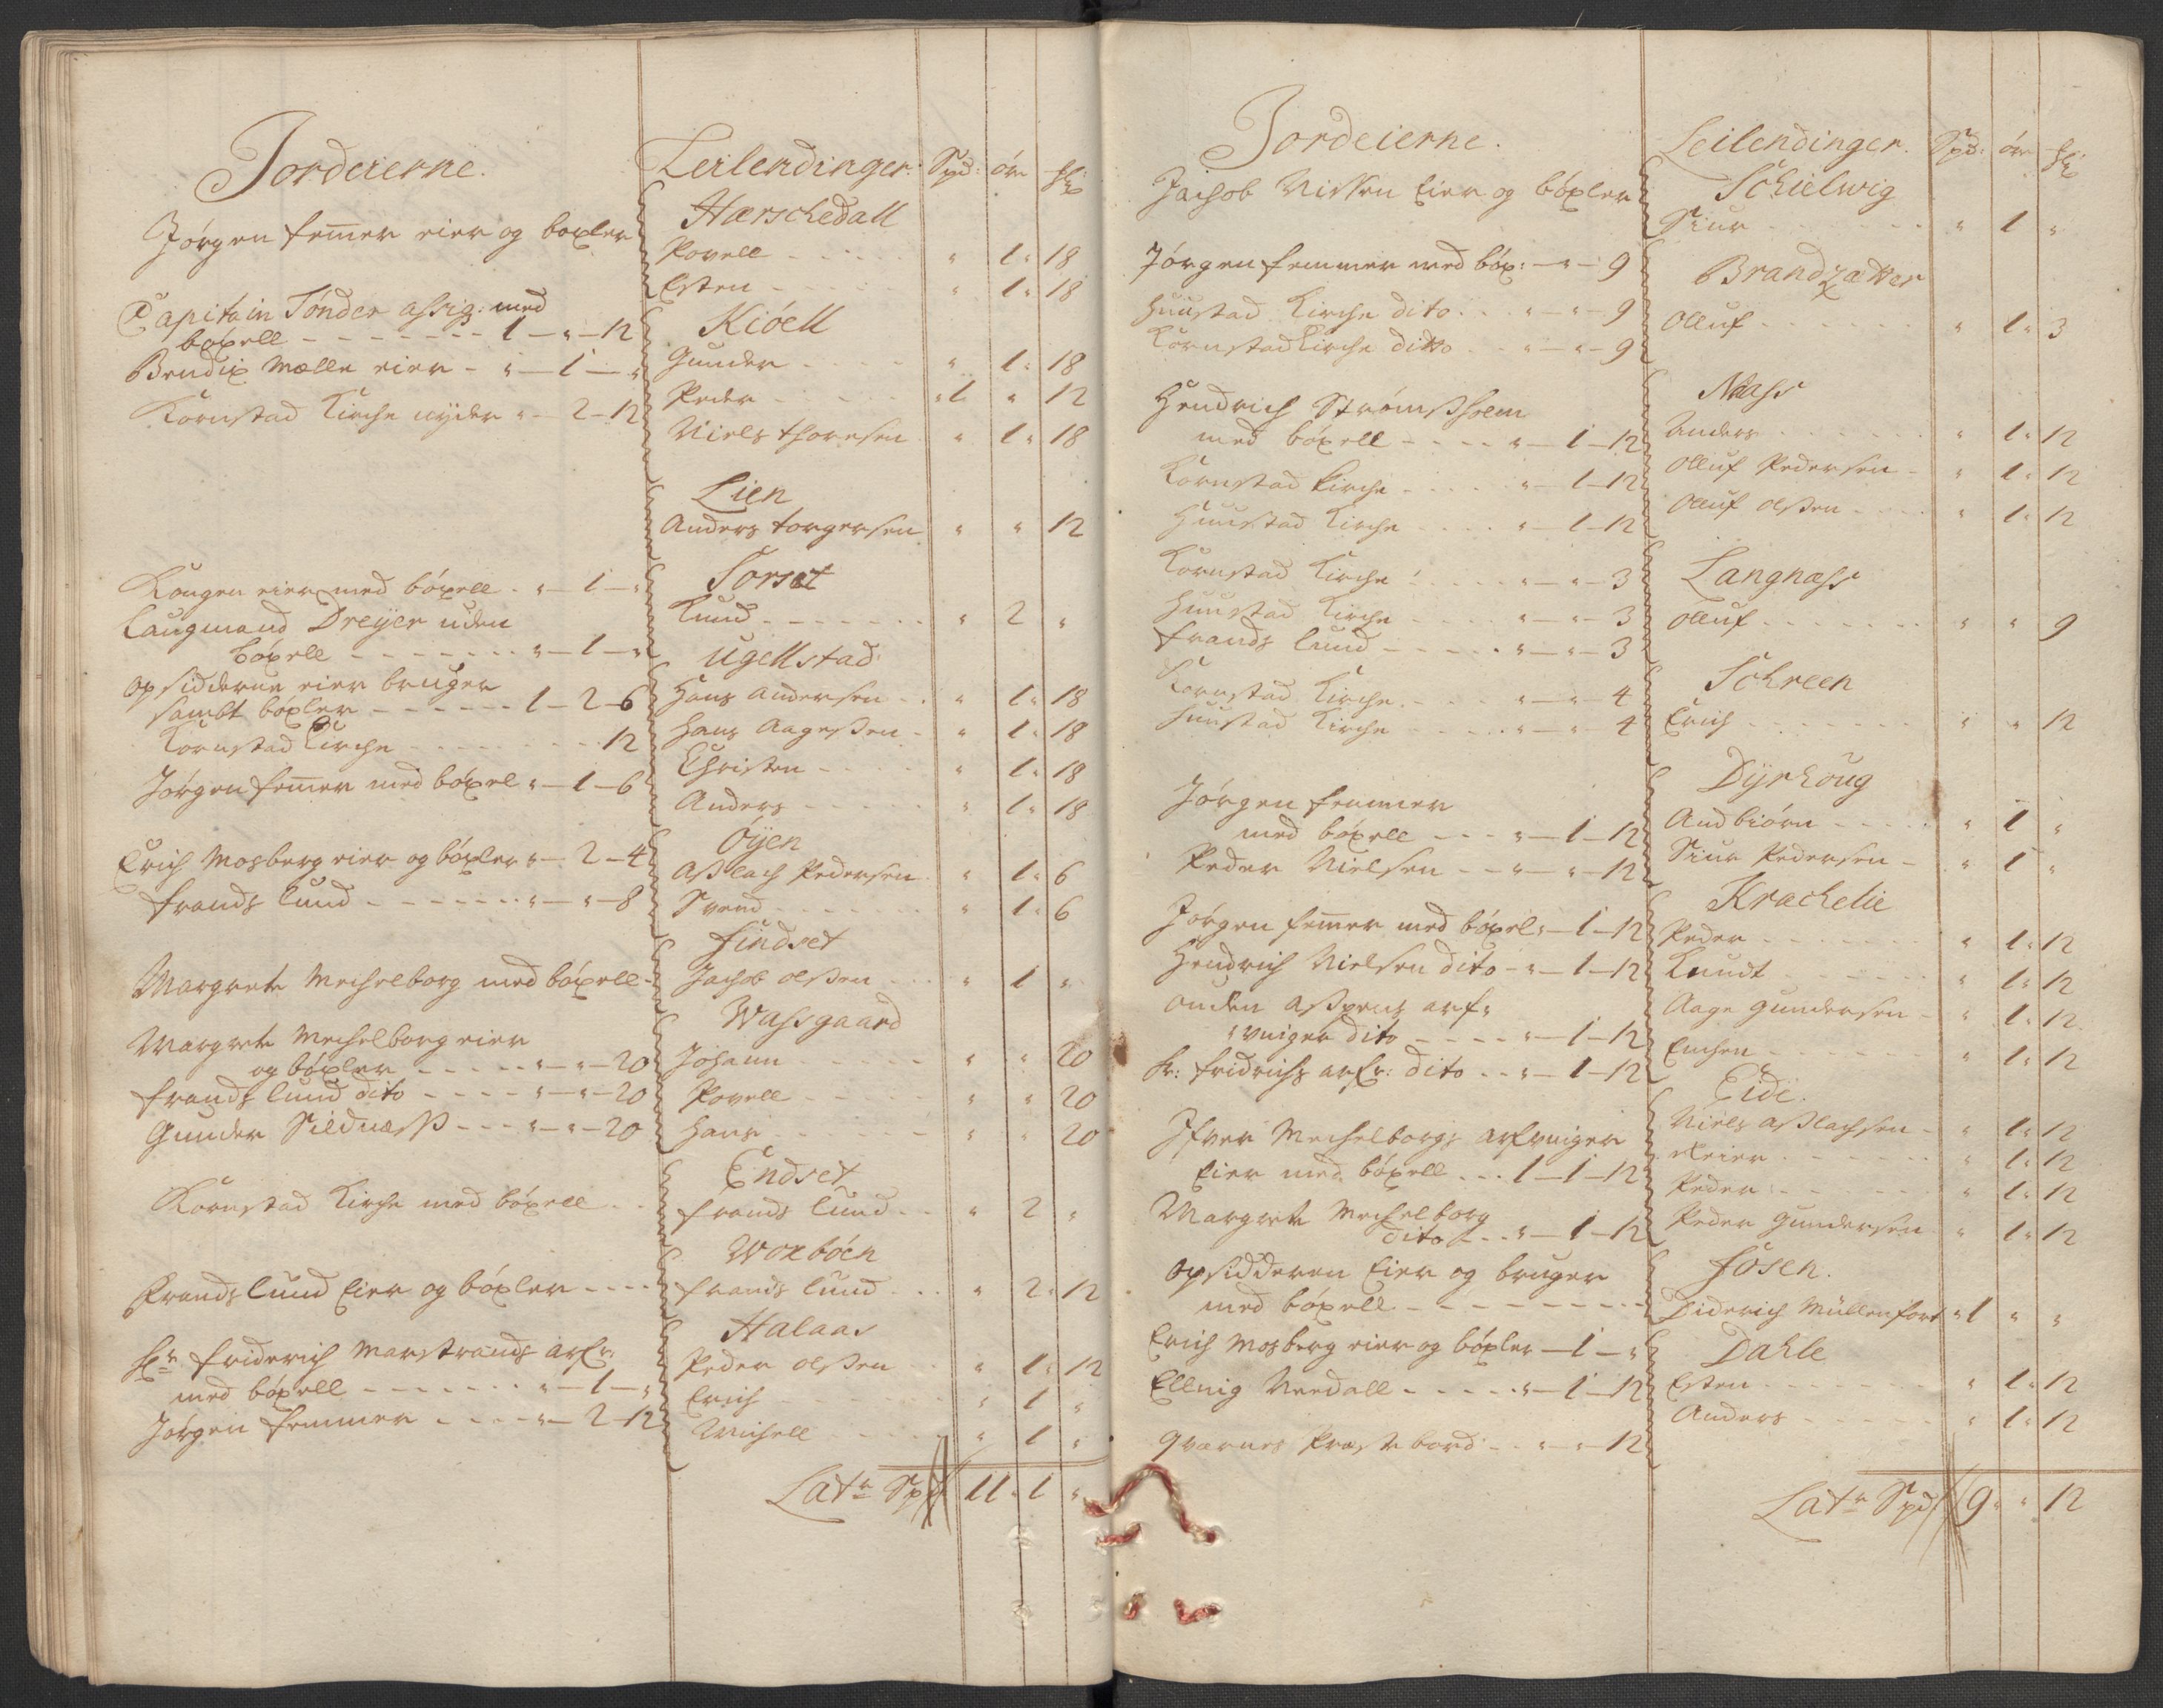 Jordeierne.
Jørgen femer eier og boxler
Capitain Tønder assig: med
boxell - - - 1 - " - 12
Bendix Mølle eier - " - 1 - "
Kornstad Kirche nyder " - 2 - 12
Kongen eier med bóxell - " - 1 - "
Laugmand Dreÿer uden
bóxell - - - " - 1 - "
opsidderne eier bruger
sambt boxler - - - 1 - 2 - 6
Kornstad Kirche - - - 12
Jørgen femer med bóxel " - 1 - 6
Erich Mosberg eier og bóxler " - 2 - 4
frands lund - - - " - " - 8
Margrete Mechelborg med bóxell -
Margrete Mechelborg eier
og bóxler - - - " - " - 20
frands lund dito - - - " - " - 20
Gunder Sildnæss - - - " - " - 20
Kornstad Kirche med bóxell - -
Frands lund Eier og bóxler - - -
Sr friderich Marstrands arfr:
med bóxell - - - " - 1 - "
Jørgen femmer - - - " - 2 - 12
Leilendinger. Spd: ór
Hærschedall
Povell - - - " 1 " 18
Esten - - - " 1 " 18
Kióell
Gunder - - - " 1 " 18
Peder - - - " 1 " 12
Niels thoresen " 1 " 18
Lien
Anders torgersen " " 12
Torset
Knud - - - " 2 "
Ugellstad
Hans Andersen - - " 1 " 18
Hans Aagesen - " 1 " 18
Christen - - - " 1 " 18
Anders - - - " 1 " 18
Óÿen
Asslach Pedersen " 1 " 6
Svend - - - " 1 " 6
findset
Jachob olsen - - - " 1 "
Wassgaard
Johann - - - " " 20
Povell - - - " " 20
Hans - - - " " 20
Endset
frands lund - - " 2 "
Woxbóen
frands lund - - - " 2 " 12
Halaas
Peder olsen - - " 1 " 12
Erich - - - " 1 "
Michell - - - " 1 "
Latr Spd 11 " 1 "
Jordeierne.
Jachob Nissen Eier og bóxler
Jørgen femmer med bóx: - " - 9
Huustad Kirche dito - - - " - " - 9
Kornstad Kirche ditto - - " - " - 9
Hendrich Strømssholm
med bóxell - - - " - 1 - 12
Kornstad Kirche - - - " - 1 - 12
Huustad Kirche - - - " - 1 - 12
Kornstad Kirche - - - " - " - 3
Huustad Kirche - - - " - " - 3
frands lund - - - " - " - 3
Kornstad Kirche - - - " - " - 4
Huustad Kirche - - - " - " - 4
Jørgen femmer
med bóxell - - - " - 1 - 12
Peder Nielsen - - " - " - 12
Jørgen femer med bóxel " - 1 - 12
Hendrich Nielsen dito - " - 1 - 12
onden Asspens arf"
"vniger dito - - - " - 1 - 12
Sr: fridrichs arfr: dito - - " - 1 - 12
Ifver Mechelborgs arfvniger
Eier med bóxell - - - 1 - 1 - 12
Margrete Mechelborg
dito - - - " - 1 - 12
opsidderen Eier og bruger
med bóxell - - -
Erich Mosberg eier og bóxler - 1 - "
Ellnig Nerdall - - - " - 1 - 12
Qvernes Præste bord - - " - " - 12
Leilendinger. Spd: ór
Schielwig
Siur - - - " 1 "
Brandzætter
Olluf - - - " 1 " 3
Næss
Anders - - - " 1 " 12
Olluf Pedersen - " 1 " 12
Olluf olsen - - - " 1 " 12
Langnæss
Olluf - - - " " 9
Schreen
Erich - - - " " 12
Dÿrhoug
Andbiórn - - - " 1 "
Siur Pedersen - " 1 "
Krachelie
Peder - - - " 1 " 12
Knudt - - - " 1 " 12
Aage Gundersen - " 1 " 12
Enchen - - - " 1 " 12
Eide.
Niels Asslachsen - " 1 " 12
Reier - - - " 1 " 12
Peder - - - " 1 " 12
Peder Gundersen " 1 " 12
fosen.
Diderich Müllenfort " 1 " "
Dahle
Esten - - - " 1 " 12
Anders - - - " 1 " 12
Latr Spd 9 " " 12